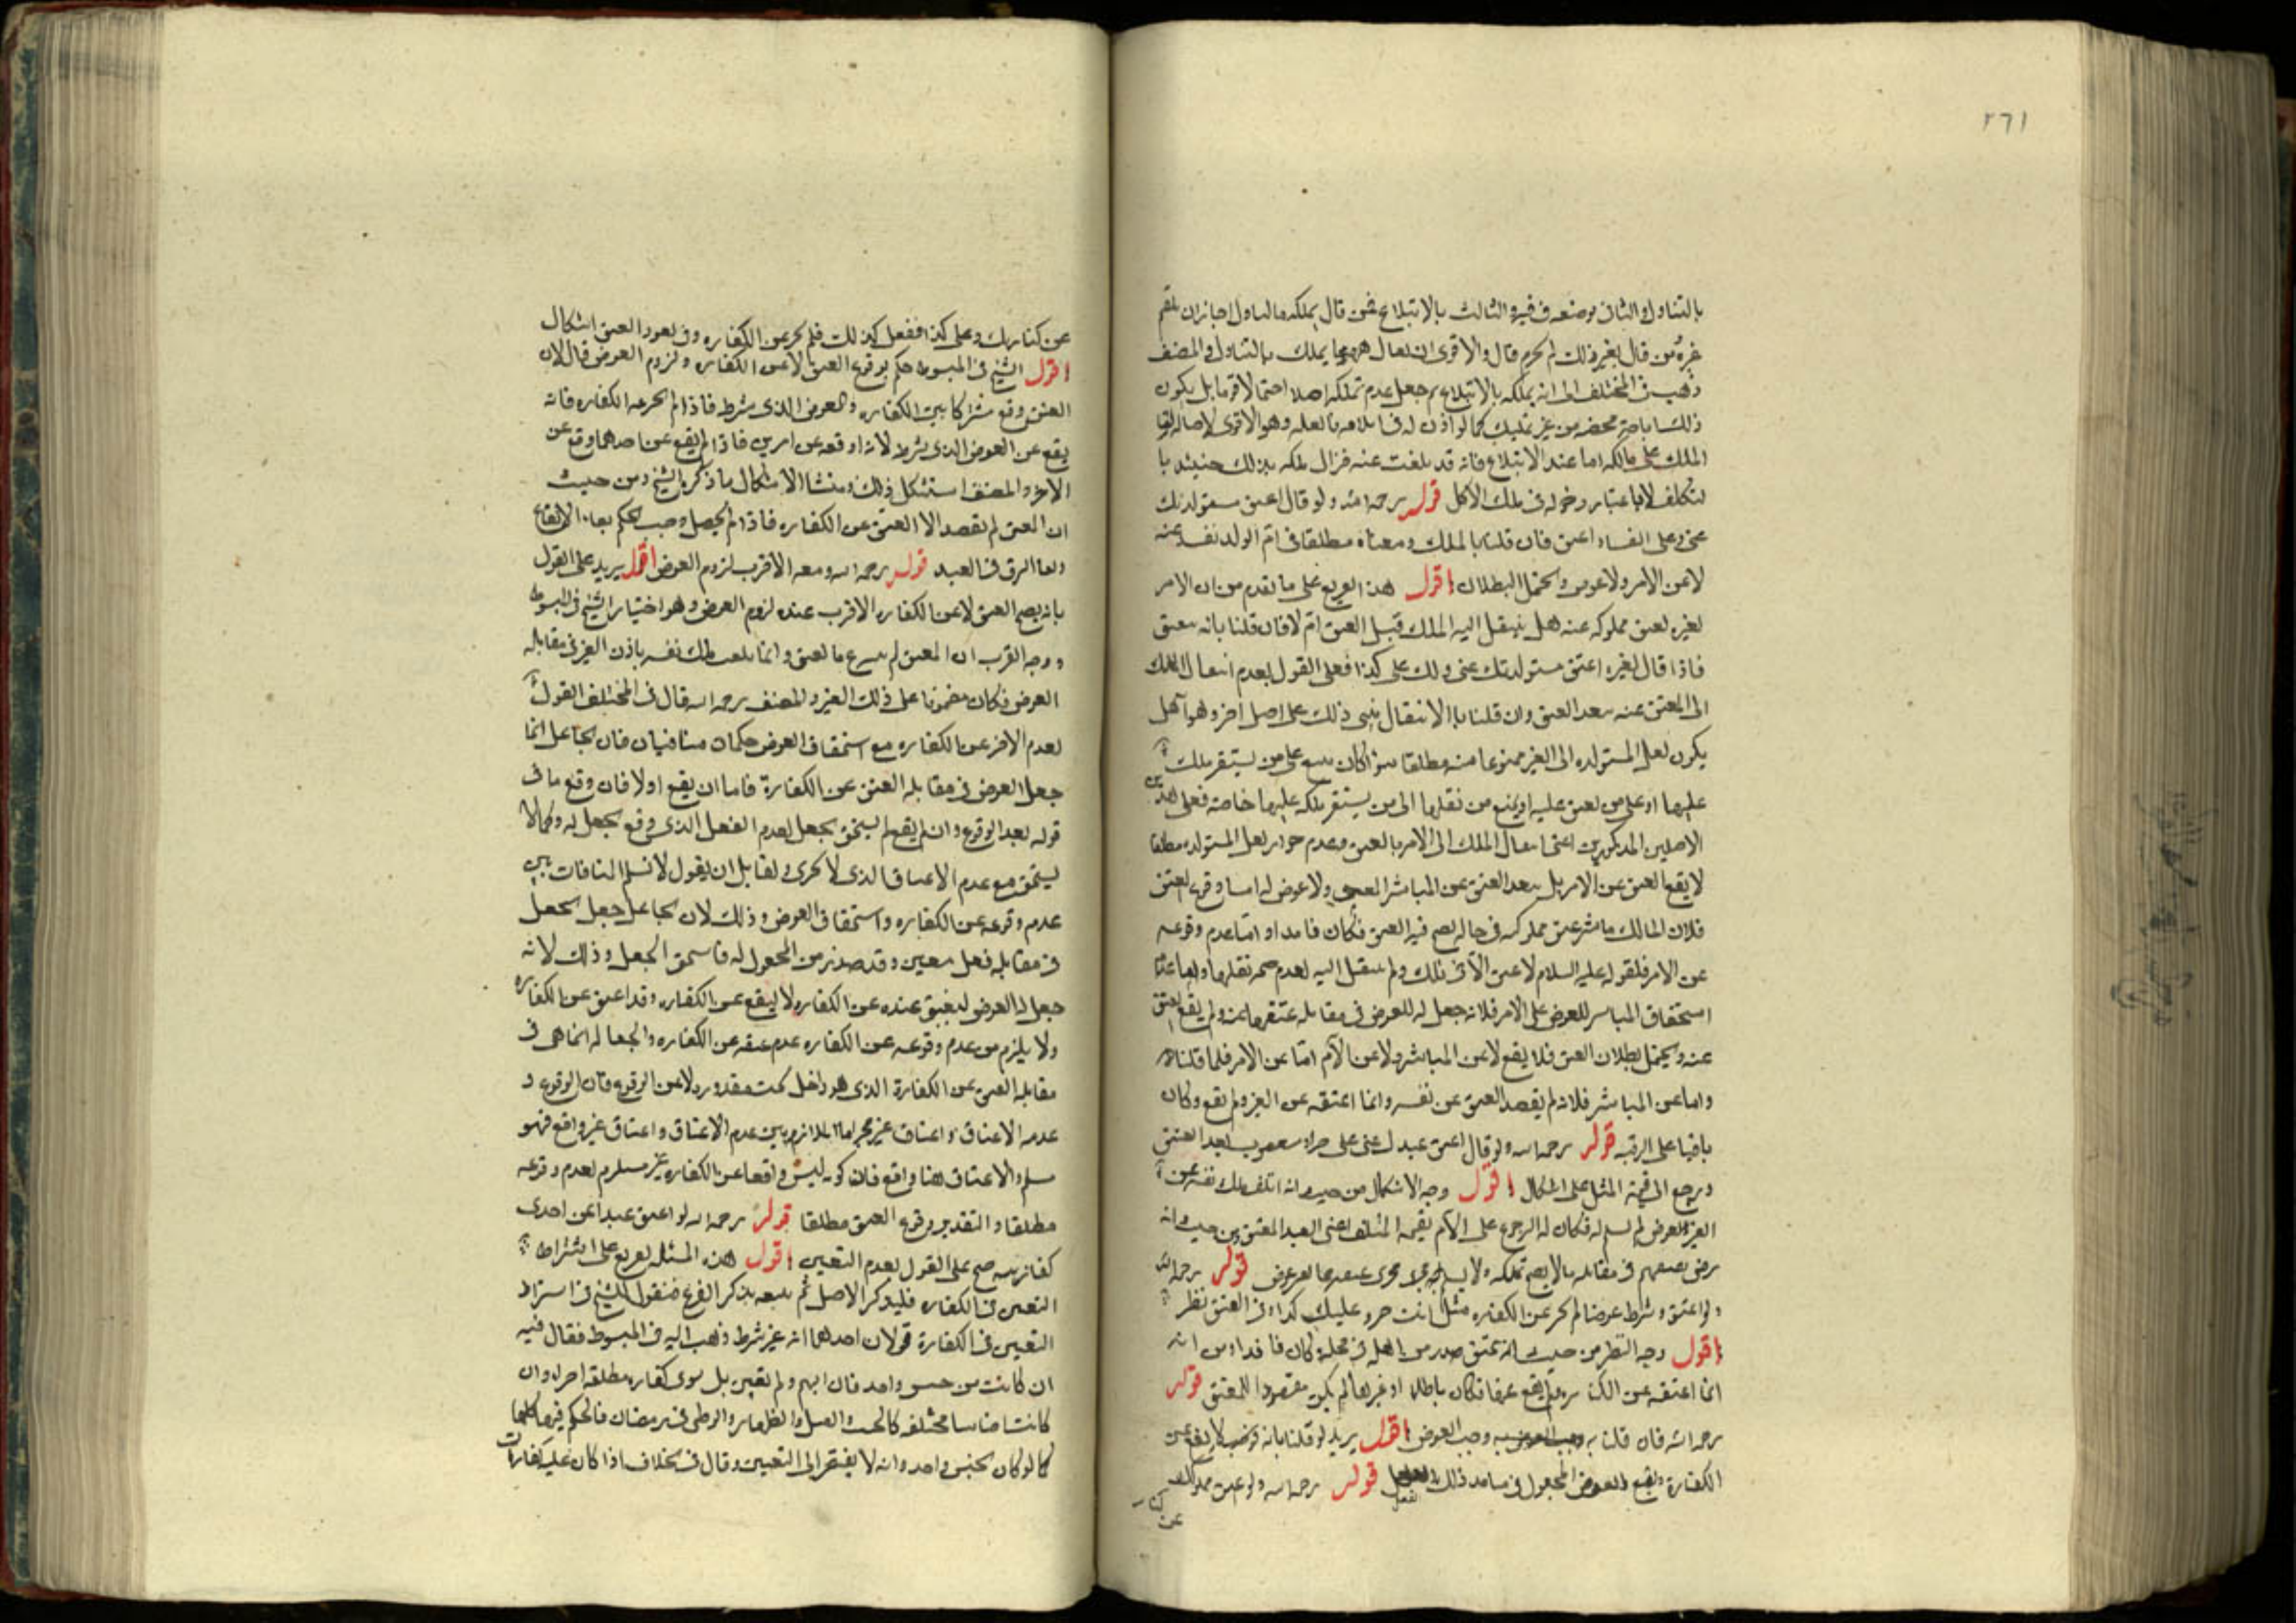 ٢٦١
بالتناول والثاني بوضعه في فيه والثالث بالابتلاع فمن قال يملكه بالتناول اجاز ان يلقم
غيره ومن قال بغير ذلك لم يجز قال والاقوى ان يقال يملك بالتناول والمصنف
ذهب في المختلف الى انه يملكه بالابتلاع ثم جعل عدم تملكه اصلا احتمالا قويا بل يكون
ذلك اباحة محضه من غير تمليك كما لو اذن له في وهو الاقوى لاصالة بقا
الملك على مالكه اما عند الابتلاع فانه قد تلفت عنه فزال ملكه بذلك حينئذ
لتكلف لا باعتبار دخوله في ملك الاكل قوله رحمه الله ولو قال اعتق مستولدتك
عني وعلى الف فان قلنا بالملك ومعناه مطلقا في ام الولد نفذ عنه
لا عن الامر ولا عوض ويحتمل البطلان اقول هذا تفريع على ما تقدم من ان الامر
لغيره بعتق مملوكه عنه هل ينتقل اليه الملك قبل العتق ام لا فان قلنا بانه
فاذا قال لغيره اعتق مستولدتك عني ولك على كذا فعلى القول بعدم انتقال الملك
الى المعتق عنه ينفذ العتق وان قلنا بالانتقال بني ذلك على اصل اخر وهو انه هل
يكون نقل المستولده الى الغير ممنوعا منه مطلقا سوا كان على من يستقر ملك
عليها او على من تعتق عليه او يمنع من نقلها الى من يستقر ملكه عليها خاصة فعلى
الاصلين المذكورين اعني انتقال الملك الى الامر بالعتق وعدم جواز نقل المستولده مطلقا
لا يقع العتق عن الامر بل ينفذ العتق عن المباشر للعتق ولا عوض له اما وقوع العتق
فلان المالك باشر عتق مملوكته في حاله يصح فيه العتق فكان نافذا واما عدم وقوعه
عن الامر فلقوله عليه السلام لا عتق الا في ملك ولم ينتقل اليه لعدم صحة نقلها
استحقاق المباشر للعوض على الامر فلانه جعل له العوض في مقابلة عتقها عنه ولم يقع العتق
عنه ويحتمل بطلان العتق فلا يقع لا عن المباشر ولا عن الامر اما عن الامر فلما قلناه
واما عن المباشر فلانه لم يقصد العتق عن نفسه وانما اعتقه عن الغير ولم يقع وكان
باقيا على الرقيه قوله رحمه الله ولو قال اعتق عبدك عني على مغصوب نفذ العتق
ويرجع الى قيمة المثل على اشكال اقول وجه الاشكال من حيث انه اتلف ملك نفسه عن
الغير لعوض لم يسلم له فكان له الرجوع على الامر بقيمة المتلف اعني العبد المعتق ومن حيث انه
رضي في مقابله ما لا يصح تملكه قوله رحمه الله
ولو اعتق وشرط عوضا لم يجز عن الكفاره مثل انت حر وعليك كذا وفي العتق نظر
اقول وجه النظر من حيث انه عتق صدر من اهله في محله كان نافذا ومن انه
انما اعتقه عن الكفاره ولم يقع عنها فكان باطلا او غيرها لم يكن مقصودا للمعتق قوله
رحمه الله فان قلنا به وجب العوض اقول يريد لو قلنا بانه لا يقع عن
الكفارة ويقع العوض المجعول في ذلك الفعل قوله رحمه الله ولو اعتق مملوك
عن
عن كفارتك وعلى كذا ففعل كذلك فلم يجز عن الكفاره وفي نفوذ العتق اشكال
اقول الشيخ في المبسوط حكم بوقوع العتق لا عن الكفاره ولزوم العوض قال لان
العتق وقع مشتركا بين الكفاره والعوض الذي شرط فاذا لم يجز عن الكفاره فانه
يقع عن العوض الذي شرط لانه اوقعه عن امرين فاذا لم يقع عن احدهما وقع عن
الاخر والمصنف استشكل ذلك ومنشا الاشكال ما ذكره الشيخ ومن حيث
ان العتق لم يقصد الا العتق عن الكفاره فاذا لم يحصل وجب الحكم
وبقا الرق في العبد قوله رحمه الله ومعه الاقرب لزوم العوض اقول يريد على القول
بانه يصح العتق لا عن الكفاره الاقرب عنده لزوم العوض وهو اختيار الشيخ في المبسوط
ووجه القرب ان المعتق لم يتبرع بالعتق وانما ملك نفسه باذن الغير في مقابله
العوض فكان مضمونا على ذلك الغير والمصنف رحمه الله قال في المختلف القول
بعدم الاجزا عن الكفاره مع استحقاق العوض حكمان متنافيان فان الجاعل انما
جعل العوض في مقابله العتق عن الكفارة فاما ان يقع او لا فان وقع نافى
قوله بعدم الوقوع وان لم يقع لم يستحق الجعل لعدم الفعل الذي وقع الجعل له وكما لا
يستحق مع عدم الاعتاق الذي لا يجزى ولقايل ان يقول لا نسلم المنافات بين
عدم وقوعه عن الكفاره واستحقاق العوض وذلك لان الجاعل جعل الجعل
في مقابله فعل معين وقد صدر من المجعول له فاستحق الجعل وذلك لانه
جعل له العوض ليعتق عبده عن الكفاره لا ليقع عن الكفاره وقد اعتق عن الكفاره
ولا يلزم من عدم وقوعه عن الكفاره عدم عتقه عن الكفاره والجعاله انما هي في
مقابلة العتق عن الكفارة الذي هو داخل تحت مقدوره لا عن الوقوع فان الوقوع و
عدمه الاعتاق واعتاق غير مجز اما الملازم بين عدم الاعتاق واعتاق غير واقع فهو
مسلم والاعتاق هنا واقع فان كونه ليس واقعا عن الكفاره غير مستلزم لعدم وقوعه
مطلقا والتقدير وقوع العتق مطلقا قوله رحمه الله لو اعتق عبدا عن احدى
كفارتيه صح على القول بعدم التعيين اقول هذه المسئله تفريع على اشتراط
التعيين في الكفاره فليذكر الاصل ثم نتبعه بذكر الفرع فنقول للشيخ في اشتراط
التعيين في الكفارة قولان احدهما انه غير شرط وذهب اليه في المبسوط فقال فيه
ان كانت من جنس واحد فان ابهم ولم يعين بل نوى كفاره مطلقه اجزاه وان
كانت اجناسا مختلفه كالحنث والقتل والظهار والوطى في رمضان فالحكم فيها كلها
كما لو كان الجنس واحد وانه لا يفتقر الى التعيين وقال في الخلاف اذا كان عليه كفارات